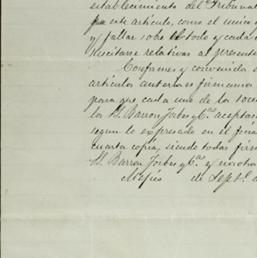 establecimiento del Tribunal
este articulo, como el unico
y fallar sobre todo y cada
suscitarse relativas al presente
Conformes y convenido
articulos anteriores firmamos
para que cada una de las
la S. Barron Forbes y Ca. acepta
segun lo expresado en el
cuarta copia, siendo todas
S. Barron Forbes y Ca. y
de Sept. d